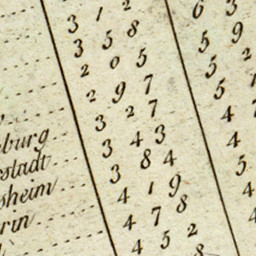 3 1 2
3 5 8 6 3
2 0 5 5 9
2 9 7 5
burg 3 2 7 5
stadt 3 4 3 4 7
sheim 3 8 4 4
rin 4 1 9 5
4 7 8 4
4 5 2 4
8